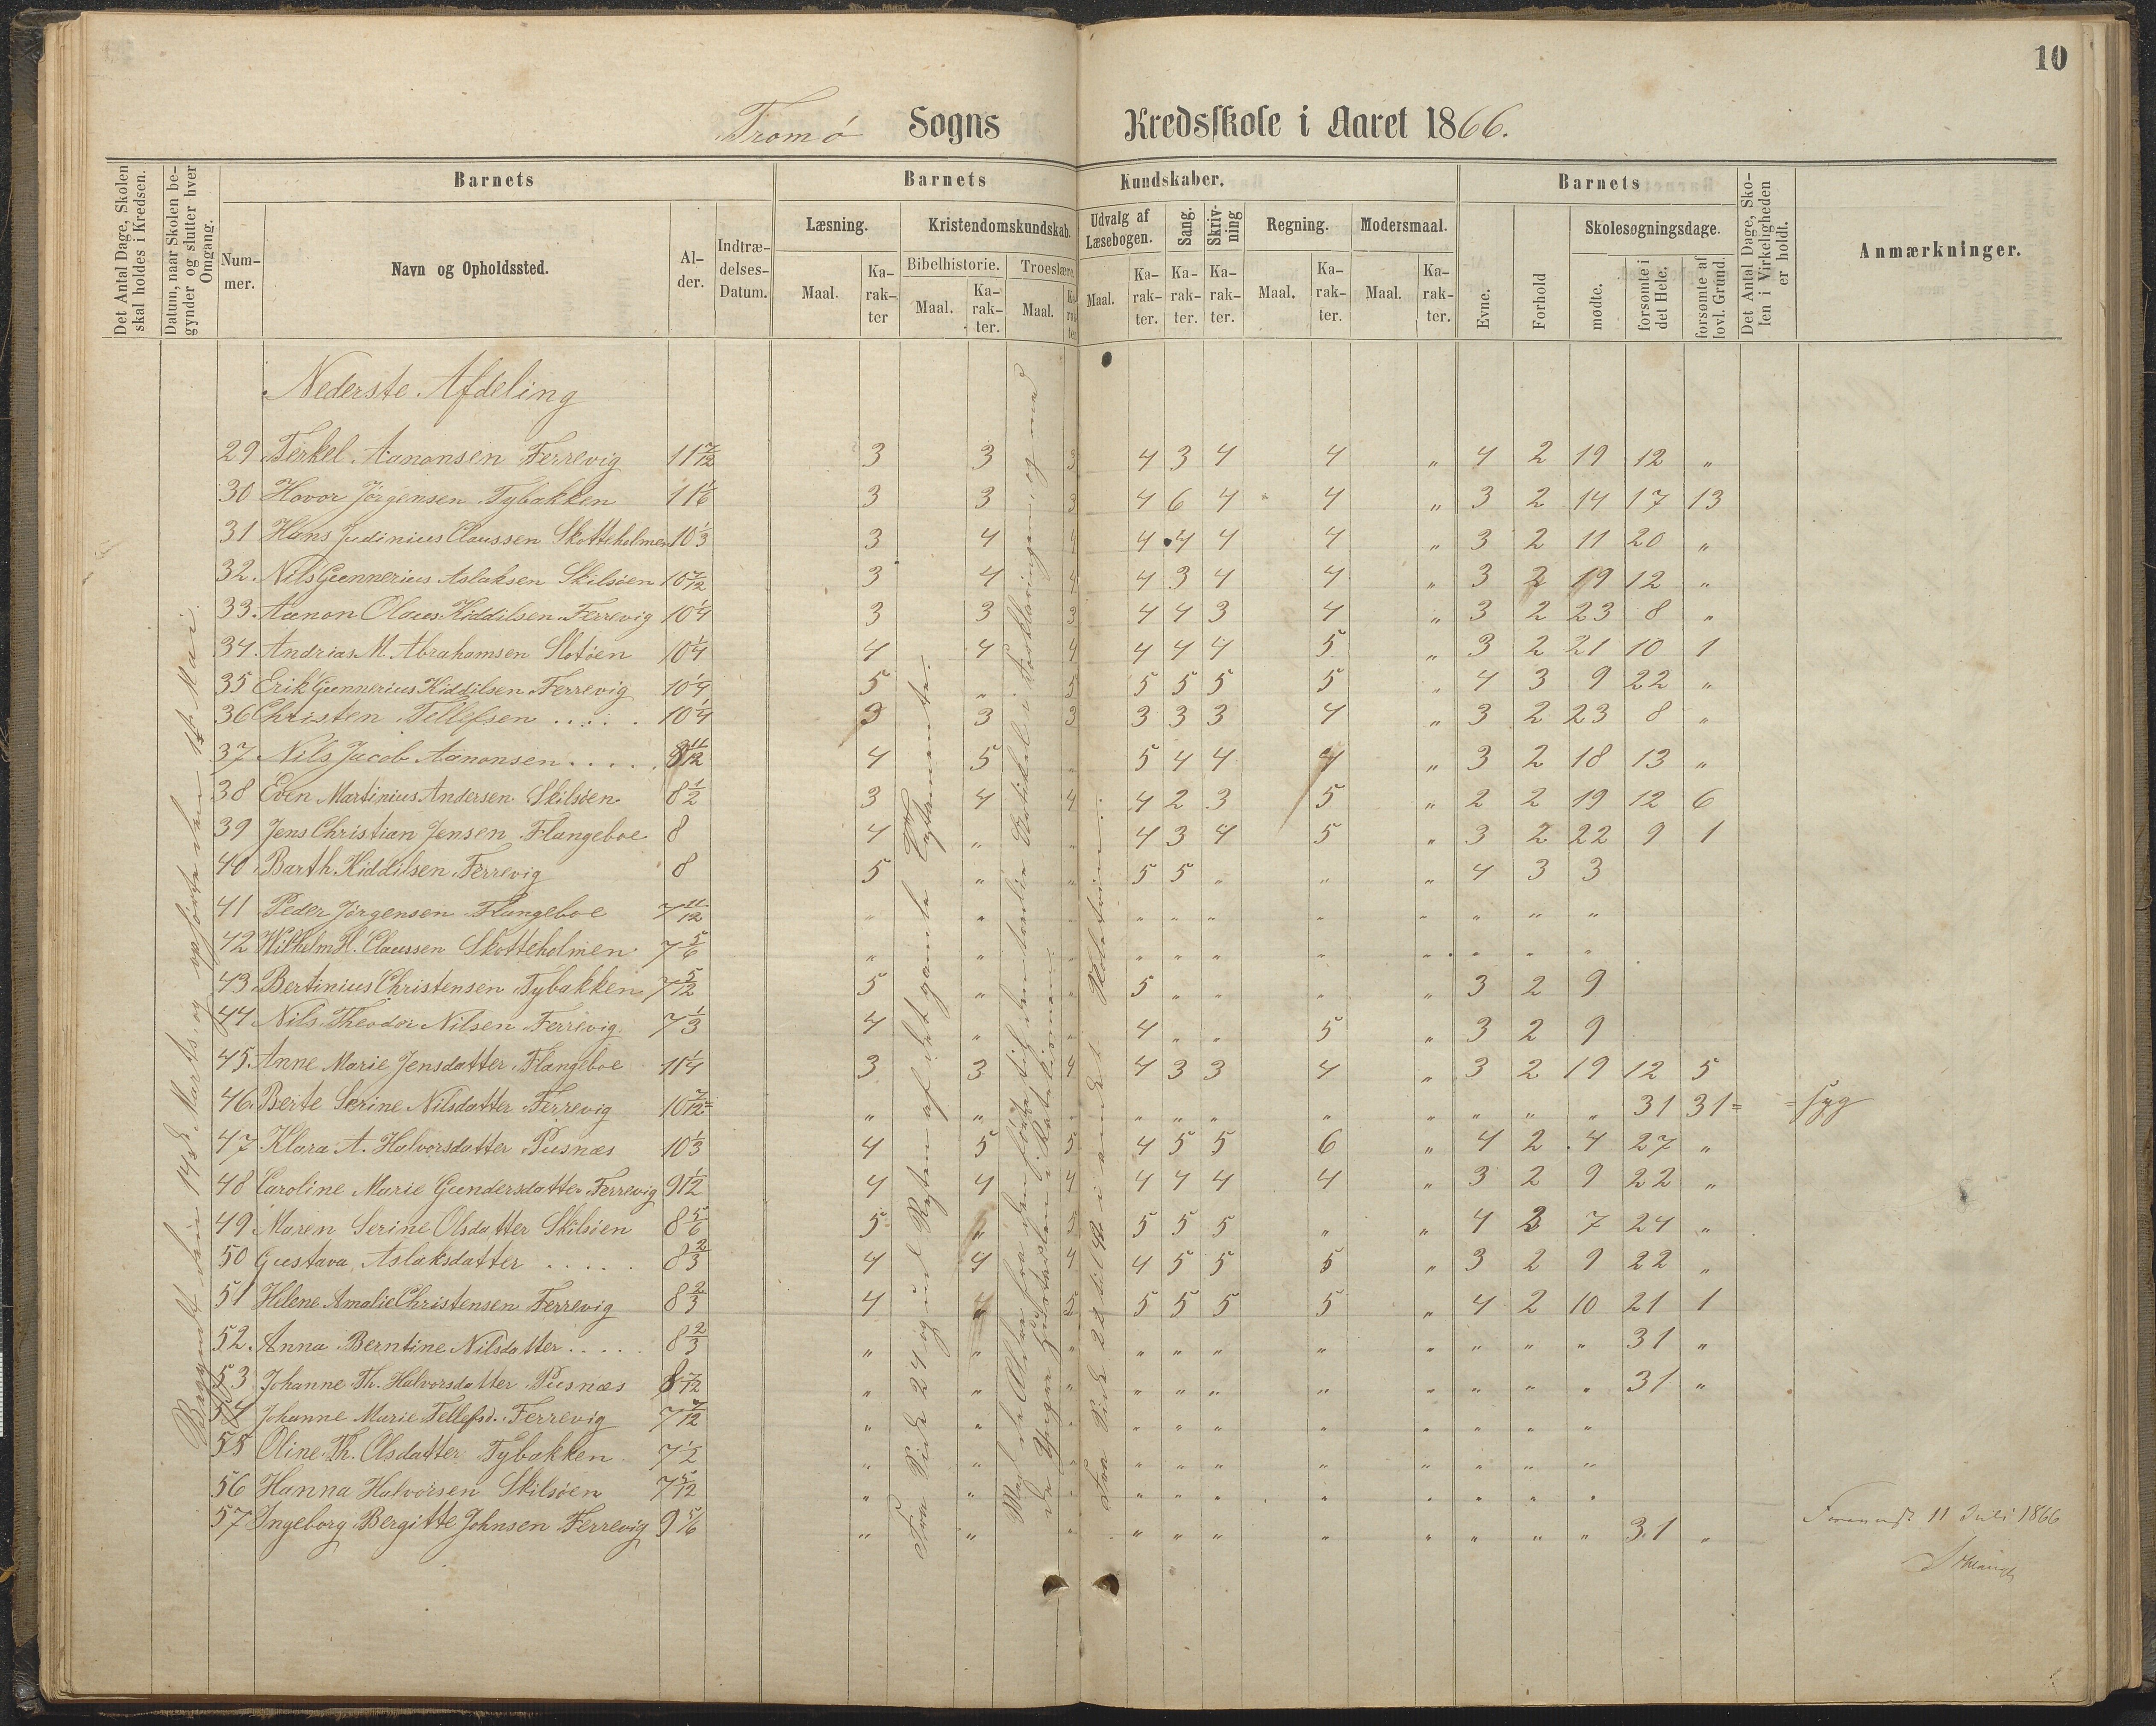 10
Tromø Sogns Kredsskole i Aaret 1866.
Det Antal Dage, Skolen skal holdes i Kredsen.
Datum, naar Skolen be- gynder og slutter hver Omgang.
Barnets
Num- mer.
Navn og Opholdssted.
Al- der.
Indtræ- delses- Datum.
Barnets Kundskaber.
Læsning.
Maal.
Ka- rak- ter
Kristendomskundskab.
Bibelhistorie.
Maal.
Ka- rak- ter.
Troeslære.
Maal.
Ka- rak- ter
Udvalg af Læsebogen.
Maal.
Ka- rak- ter.
Sang.
Ka- rak- ter.
Skriv- ning
Ka- rak- ter.
Regning.
Maal.
Ka- rak- ter.
Modersmaal.
Maal.
Ka- rak- ter.
Barnets
Evne.
Forhold
Skolesøgningsdage.
mødte.
forsømte i det Hele.
forsømte af lovl. Grund.
Det Antal Dage, Sko- len i Virkeligheden er holdt.
Anmærkninger.
Nederste Afdeling
29 Terkel Aanonsen Ferrevig 11 7/12 3 3 3 4 3 4 4 " 4 2 19 12 "
30 Hovor Jørgensen Tybakken 11 1/6 3 3 3 4 6 4 4 " 3 2 14 17 13
31 Hans Judinius Claussen Skotteholmen 10 1/3 3 4 4 4 4 4 4 " 3 2 11 20 "
32. Nils Gunnerius Aslaksen Skilsöen 10 7/12 3 4 4 4 3 4 4 " 3 2 19 12 "
33. Aanon Olaus Kiddilsen Ferrevig 10 1/4 3 3 3 4 4 3 4 " 3 2 23 8 "
34. Andrias M. Abrahamsen Slotöen 10 1/4 4 4 4 4 4 4 5 " 3 2 21 10 1
35 Erik Gunnerius Kiddilsen Ferrevig 10 1/4 5 " 5 5 5 5 5 " 4 3 9 22 "
36 Christen Tellefsen ..... 10 1/4 3 3 3 3 3 3 4 " 3 2 23 8 "
37 Nils Jacob Aanonsen ..... 8 11/12 4 5 " 5 4 4 4 " 3 2 18 13 "
38 Even Martinius Andersen Skilsöen 8 1/2 3 4 4 4 2 3 5 " 2 2 19 12 6
39 Jens Christian Jensen Flangeboe 8 4 " " 4 3 4 5 " 3 2 22 9 1
40 Barth. Kiddilsen Ferrevig 8 5 " " 5 5 " " " 4 3 3
41 Peder Jørgensen Flangeboe 7 11/12 " " " " " " " " " " "
42 Wilhelm H. Claussen Skotteholmen 7 5/6 " " " " " " " " " " "
43. Bertinius Christensen Tybakken 7 5/12 5 " " 5 " " " " 3 2 9
44 Nils Theodor Nilsen Ferrevig 7 1/3 4 " " 4 " " 5 " 3 2 9
45. Anne Marie Jensdatter Flangeboe 11 1/4 3 3 4 4 3 3 4 " 3 2 19 12 5
46. Berte Serine Nilsdatter Ferrevig 10 7/12 " " " " " " " " " " " 31 31 = = syg
47 Klara A. Halvorsdatter Pusnæs 10 1/3 4 5 5 4 5 5 6 " 4 2 4 27 "
48 Caroline Marie Gundersdatter Ferrevig 9 1/2 4 4 4 4 4 4 4 " 3 2 9 22 "
49 Maren Serine Olsdatter Skilsöen 8 5/6 5 " 5 5 5 5 " " 4 3 7 24 "
50 Gustava Aslaksdatter ..... 8 2/3 4 4 4 4 5 5 5 " 3 2 9 22 "
51 Helene Amalie Christensen Ferrevig 8 2/3 4 " 5 5 5 5 5 " 4 2 10 21 1
52. Anna Berntine Nilsdatter ..... 8 2/3 " " " " " " " " " " " 31 "
53 Johanne Th. Halvorsdatter Pusnæs 8 7/12 " " " " " " " " " " " 31 "
54 Johanne Marie Tellefsd. Ferrevig 7 7/12 " " " " " " " " " " "
55 Oline Th. Olsdatter Tybakken 7 1/2 " " " " " " " " " " "
56 Hanna Halvorsen Skilsöen 7 5/12 " " " " " " " " " " "
57 Ingeborg Bergitte Johnsen Ferrevig 9 5/6 " " " " " " " " " " " 31 "
Begyndt den 14de Marts og ophørte den 1ste Mai.
Fra Side 24 og ud Resten af det gamle Testamente.
Fra Side 22 til
11 Juli 1866